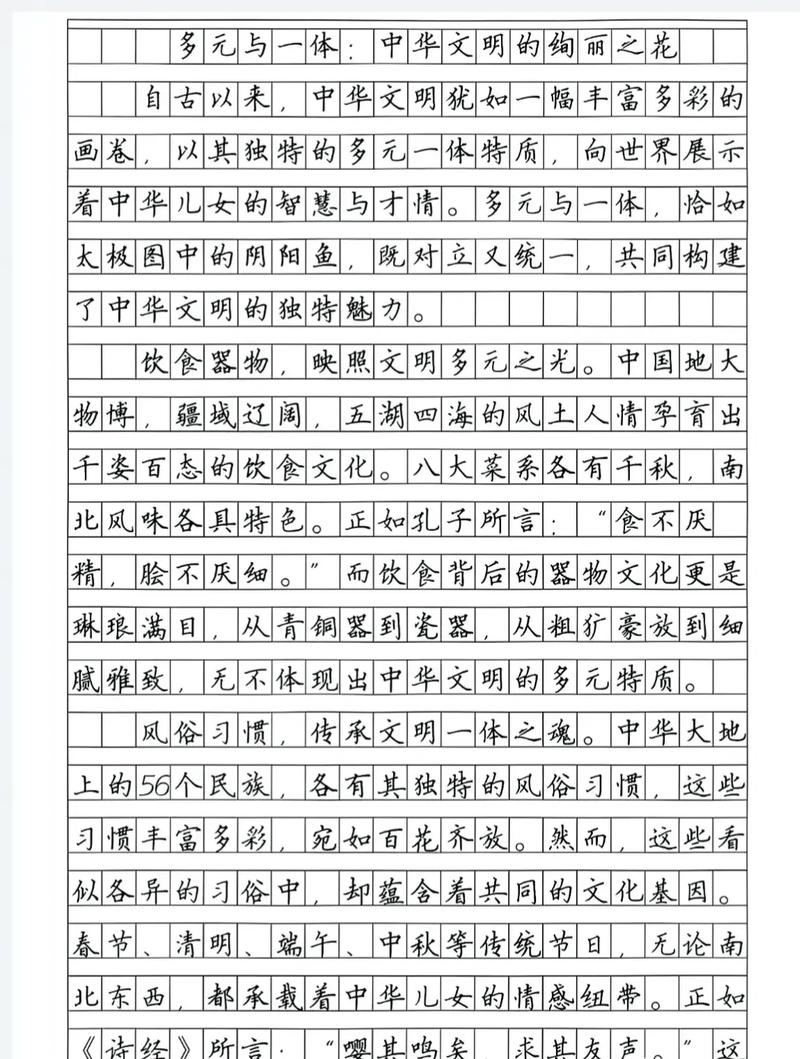 多元与一体：中华文明的绚丽之花
自古以来，中华文明犹如一幅丰富多彩的
画卷，以其独特的多元一体特质，向世界展示
着中华儿女的智慧与才情。多元与一体，恰如
太极图中的阴阳鱼，既对立又统一，共同构建
了中华文明的独特魅力。
饮食器物，映照文明多元之光。中国地大
物博，疆域辽阔，五湖四海的风土人情孕育出
千姿百态的饮食文化。八大菜系各有千秋，南
北风味各具特色。正如孔子所言：“食不厌
精，脍不厌细。”而饮食背后的器物文化更是
琳琅满目，从青铜器到瓷器，从粗犷豪放到细
腻雅致，无不体现出中华文明的多元特质。
风俗习惯，传承文明一体之魂。中华大地
上的56个民族，各有其独特的风俗习惯，这些
习惯丰富多彩，宛如百花齐放。然而，这些看
似各异的习俗中，却蕴含着共同的文化基因。
春节、清明、端午、中秋等传统节日，无论南
北东西，都承载着中华儿女的情感纽带。正如
《诗经》所言：“嘤其鸣矣，求其友声。”这